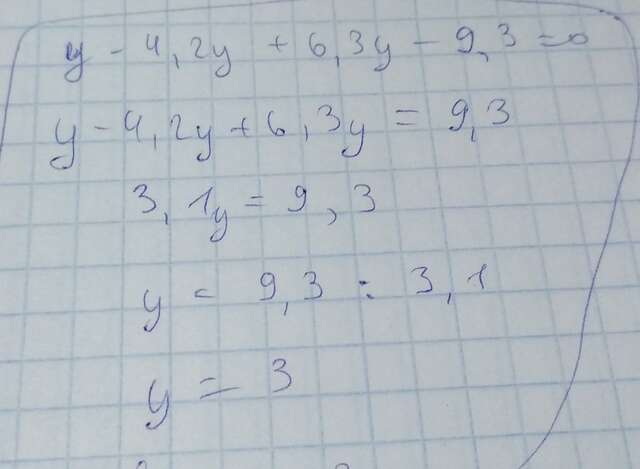 y - 4,2y + 6,3y - 9,3 = 0
y - 4,2y + 6,3y = 9,3
3,1y = 9,3
y = 9,3 : 3,1
y = 3